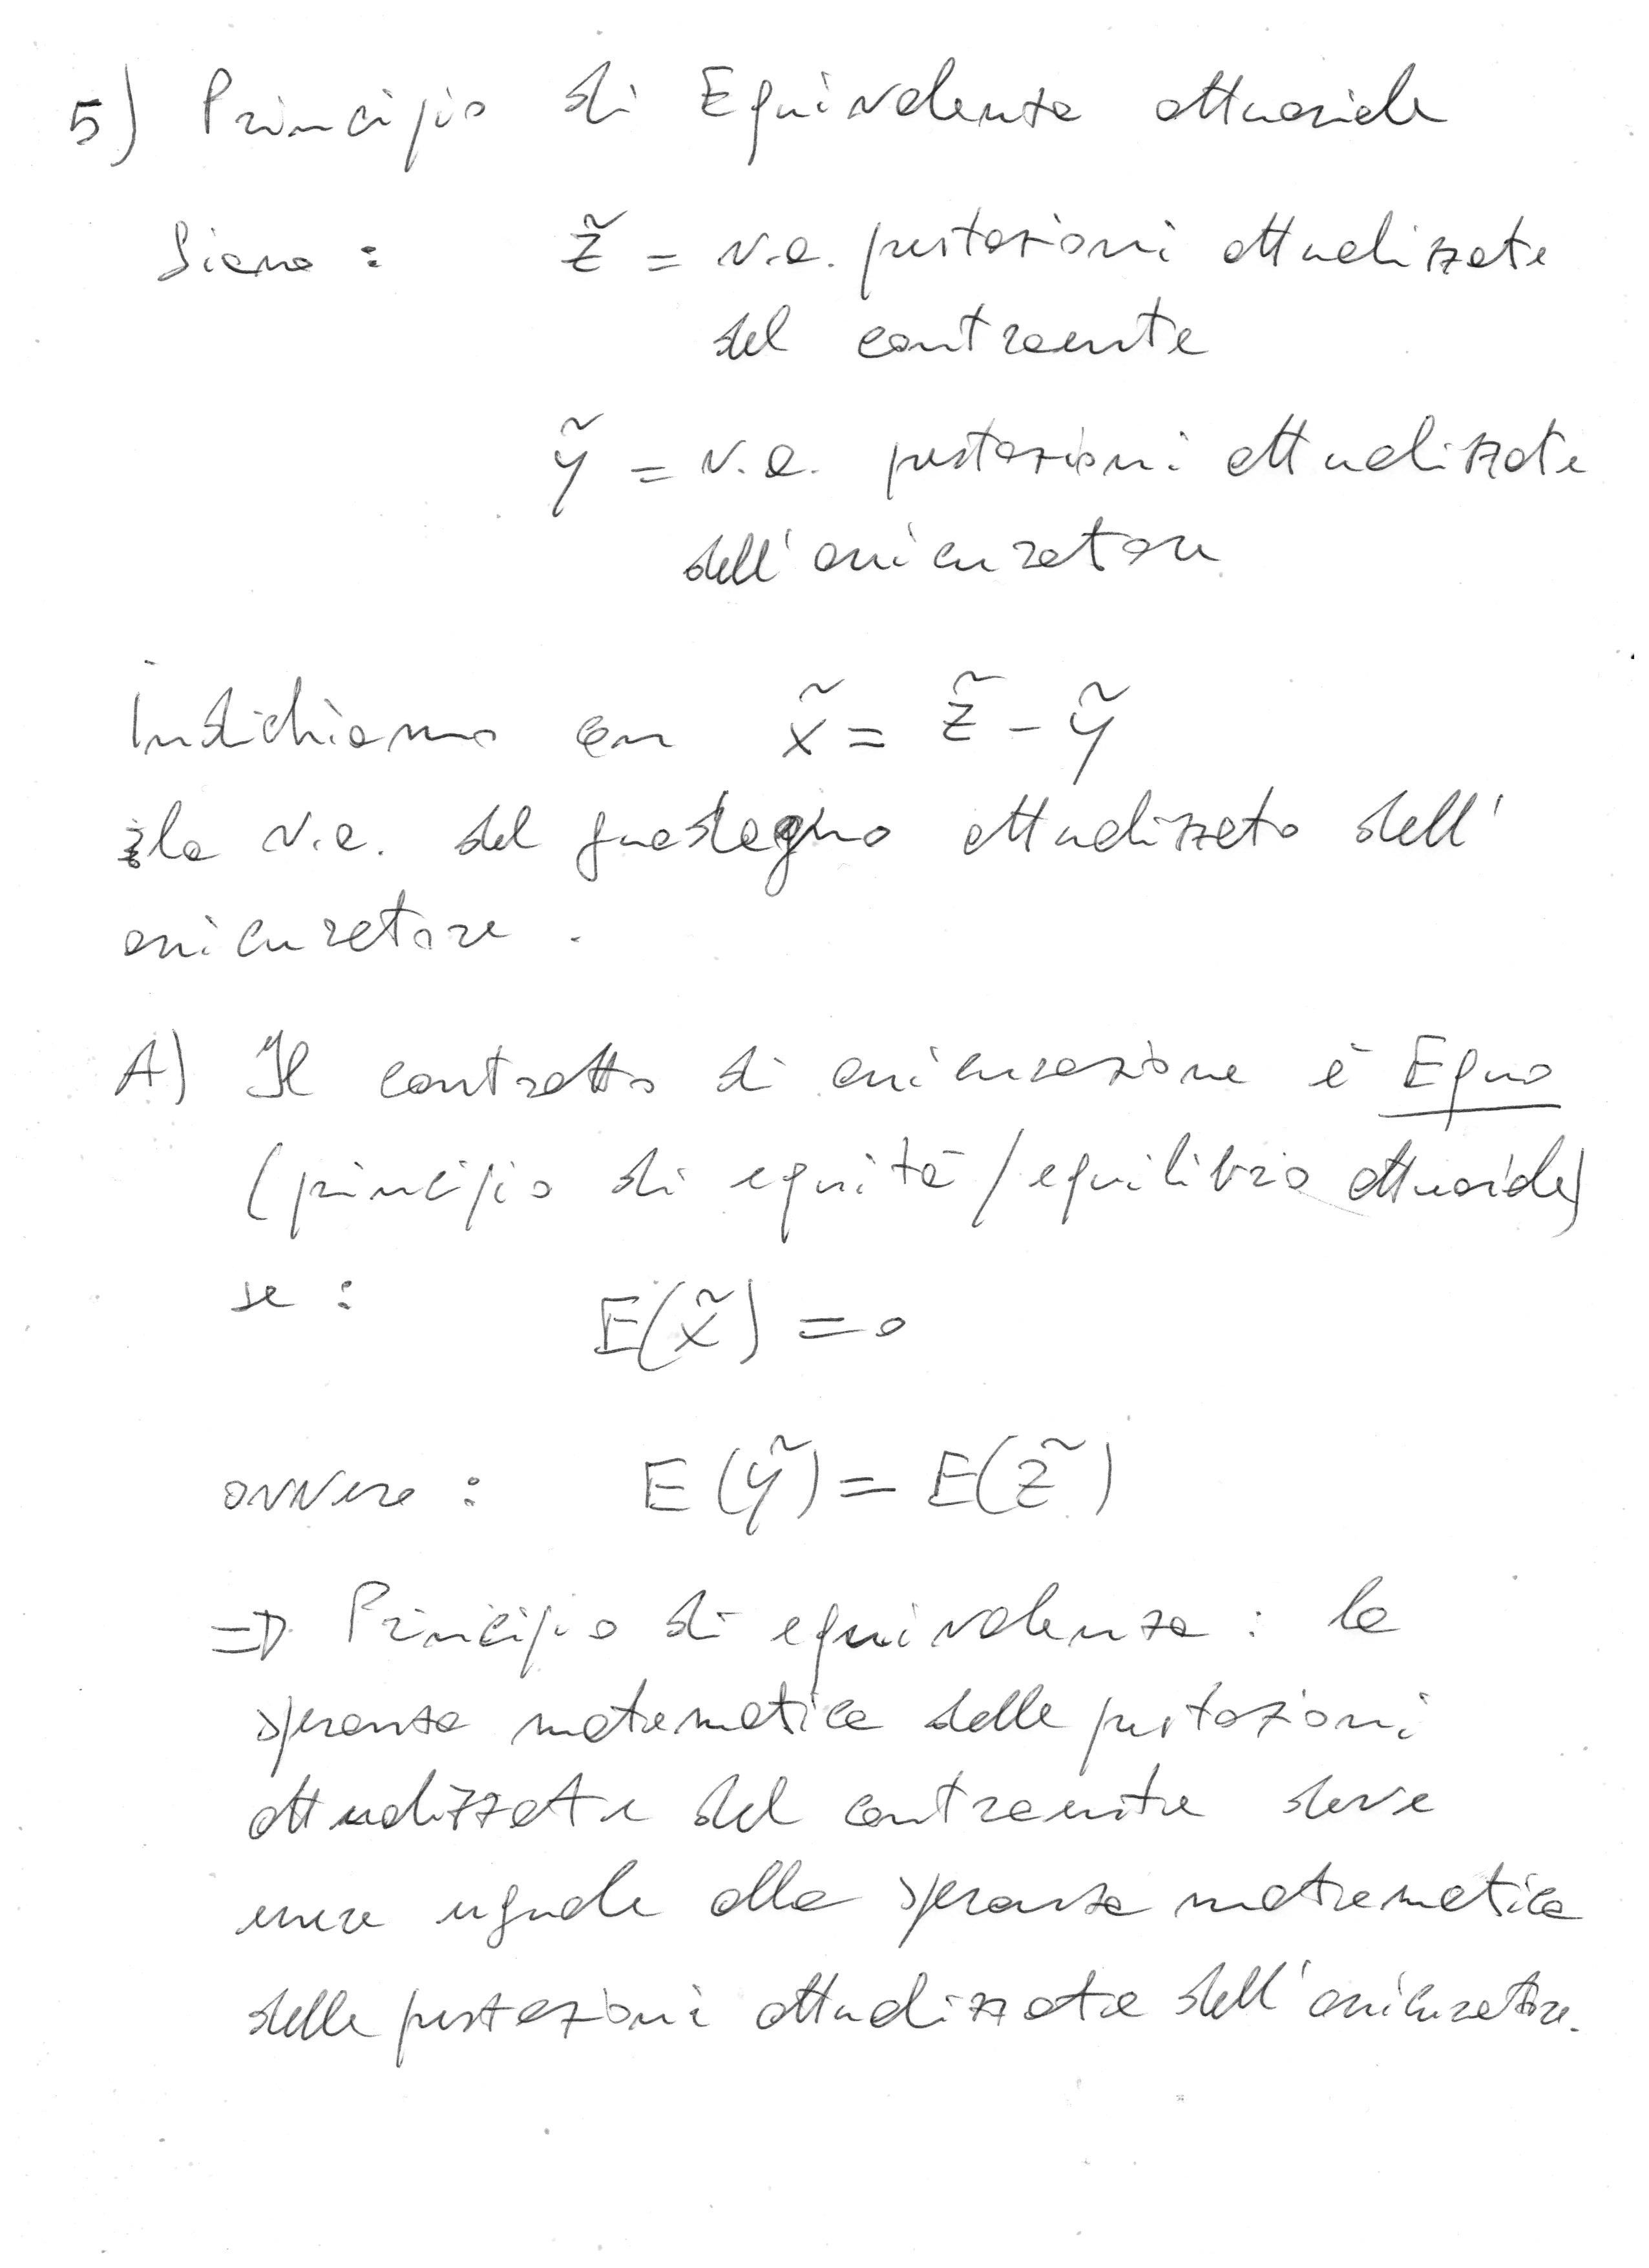 5) Principio di Equivalenza attuariale
Siano : z̃ = v.a. prestazioni attualizzate
del contraente
ỹ = v.a. prestazioni attualizzate
dell'assicuratore
Indichiamo con x̃ = z̃ - ỹ
la v.a. del guadagno attualizzato dell'
assicuratore .
A) Il contratto di assicurazione è Equo
(principio di equità / equilibrio attuariale)
se : E(x̃) = 0
ovvero : E(ỹ) = E(z̃)
⇒ Principio di equivalenza : la
speranza matematica delle prestazioni
attualizzate del contraente deve
essere uguale alla speranza matematica
delle prestazioni attualizzate dell'assicuratore.